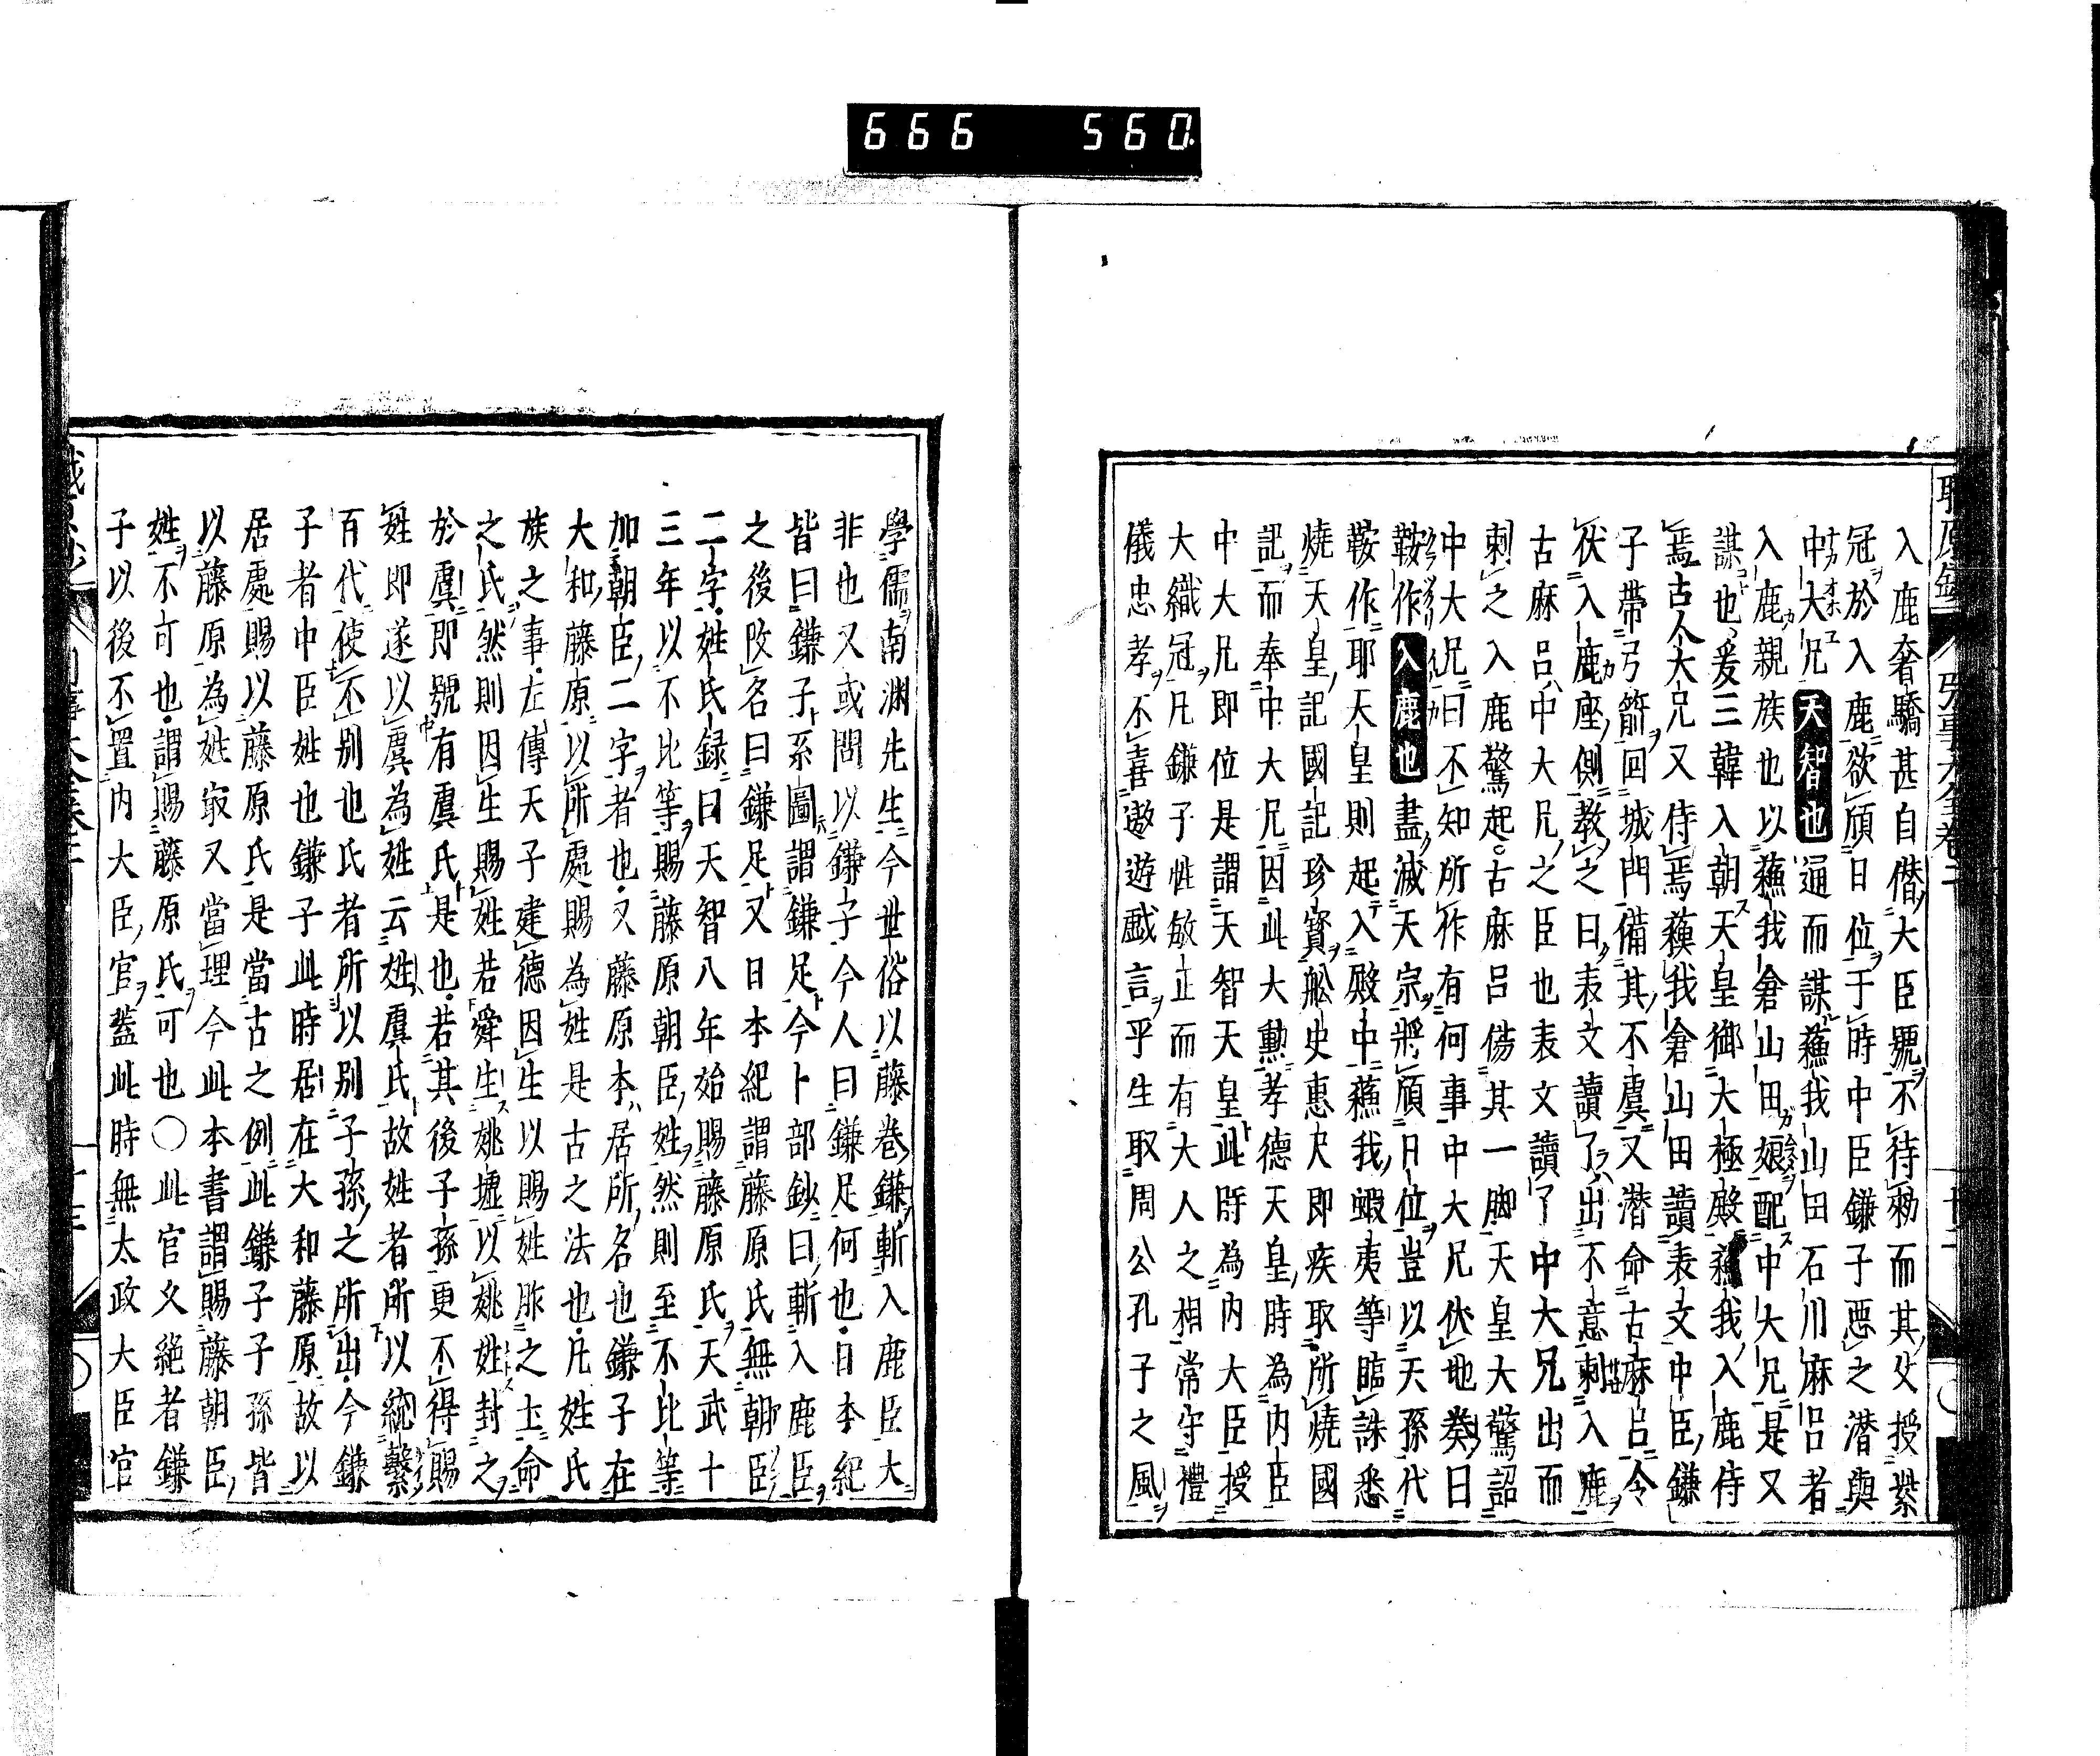 666 560
入鹿奢驕甚自僭大臣號不待勅而其父授紫
冠於入鹿欲傾日位于時中臣鎌子惡之潜與
中大兄天智也通而謀蘓我山田石川麻呂者
入鹿親族也以蘓我倉山田娘配中大兄是又
謀也爰三韓入朝天皇御大極殿蘓我入鹿侍
焉古人大兄又侍焉蘓我倉山田讀表文中臣鎌
子帶弓箭回城門備其不虞又潜命古麻呂令
伏入鹿座側教之曰表文讀了出不意刺入鹿
古麻呂中大兄之臣也表文讀了中大兄出而
刺之入鹿驚起古麻呂傷其一脚天皇大驚詔
中大兄曰不知所作有何事中大兄伏地奏曰
鞍作入鹿也盡滅天宗將傾日位豈以天孫代
鞍作耶天皇則起入殿中蘓我蝦夷等臨誅悉
燒天皇記國記珍寳舩史惠尺即疾取所燒國
記而奉中大兄因此大勲孝德天皇時為内臣
中大兄即位是謂天智天皇此時為内大臣授
大織冠凡鎌子性敏正而有大人之相常守禮
儀忠孝不喜遨遊戯言乎生取周公孔子之風
學儒南渊先生今世俗以藤卷鎌斬入鹿臣大
非也又或問以鎌子今人曰鎌足何也日本紀
皆曰鎌子系圖謂鎌足今卜部鈔曰斬入鹿臣
之後改名曰鎌足又日本紀謂藤原氏無朝臣
二字姓氏録曰天智八年始賜藤原氏天武十
三年以不比等賜藤原朝臣姓然則至不比等
加朝臣二字者也又藤原本居所名也鎌子在
大和藤原以所處賜為姓是古之法也凡姓氏
族之事左傳天子建德因生以賜姓胙之土命
之氏然則因生賜姓若舜生姚墟以姚姓封之
於虞即號有虞氏是也若其後子孫更不得賜
姓即遂以虞為姓云姓虞氏故姓者所以統繫
百代使不别也氏者所以别子孫之所出今鎌
子者中臣姓也鎌子此時居在大和藤原故以
居處賜以藤原氏是當古之例此鎌子子孫皆
以藤原為姓㝡又當理今此本書謂賜藤朝臣
姓不可也謂賜藤原氏可也〇此官久絶者鎌
子以後不置内大臣官蓋此時無太政大臣官